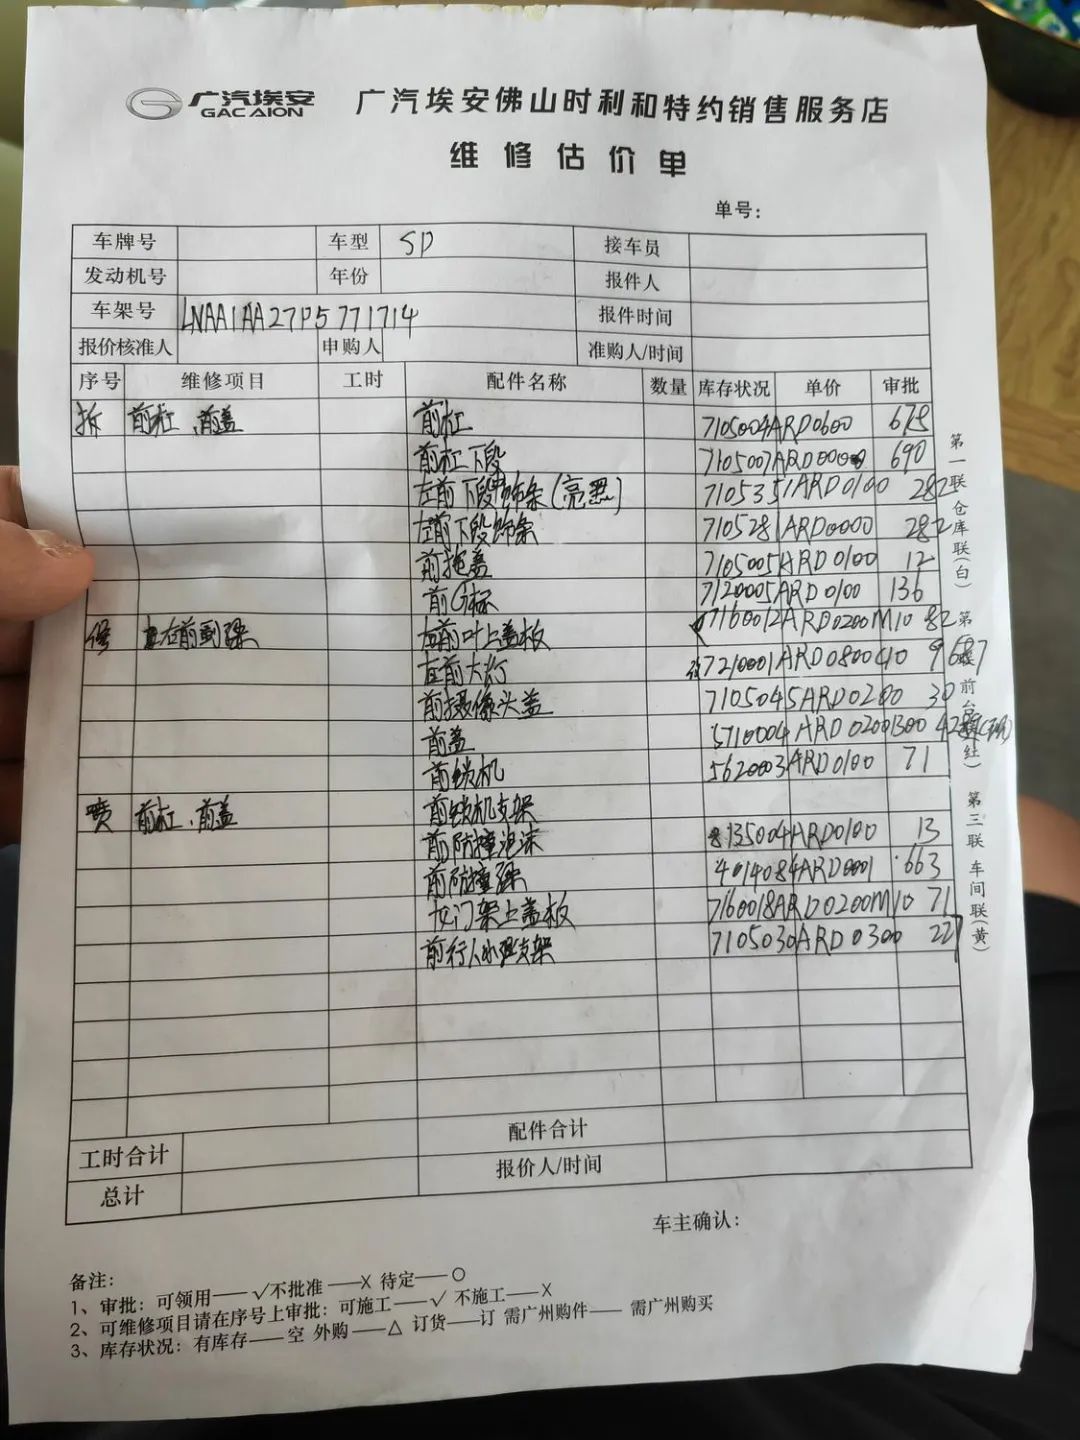 广汽埃安 GAC AION 广汽埃安佛山时利和特约销售服务店
维修估价单
单号：
车牌号 车型 SP 接车员
发动机号 年份 报件人
车架号 LNAA1AA27P5771714 报件时间
报价核准人 申购人 准购人/时间
序号 维修项目 工时 配件名称 数量 库存状况 单价 审批
拆 前杠、前盖 前杠 7105004ARD0600 675
前杠下段 7105007ARD0000 690
左前下段饰条(亮黑) 7105351ARD0100 282
左前下段饰条 7105281ARD0000 282
前拖盖 7105005ARD0100 12
前G标 7120005ARD0100 136
右前 左前叶上盖板 7160012ARD0200M10 82
左前大灯 7210001ARD080040
前摄像头盖 7105045ARD0200 30
前盖 5710004ARD0200B00
前锁机 5620003ARD0100 71
喷 前杠、前盖 前锁机支架
前防撞泡沫 8135004ARD0100 13
前防撞梁 4014084ARD0001 663
上盖板 7160018ARD0200M10 71
前行人 支架 7105030ARD0300 227
第一联 仓库联(白)
第 前台 红)
第三联 车间联(黄)
工时合计 配件合计
总计 报价人/时间
车主确认：
备注：
1、审批：可领用——√不批准——X 待定——○
2、可维修项目请在序号上审批：可施工——√ 不施工——X
3、库存状况：有库存——空 外购——△ 订货——订 需广州购件—— 需广州购买